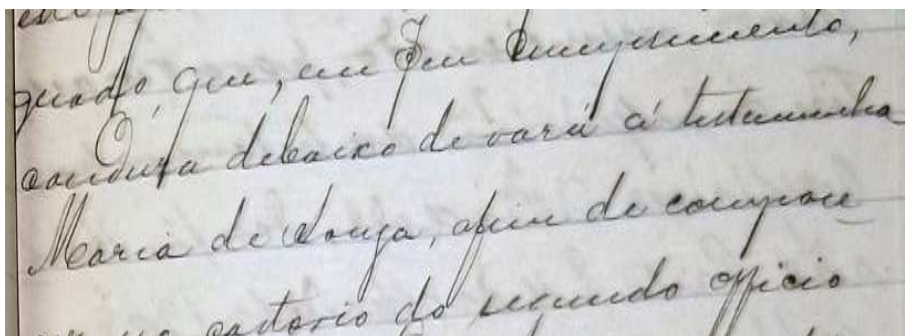 quado, que, em seu cumprimento,
conduza debaixo de vara á testemunha
Maria de Souza, afim de compare
cer no cartorio do segundo officio